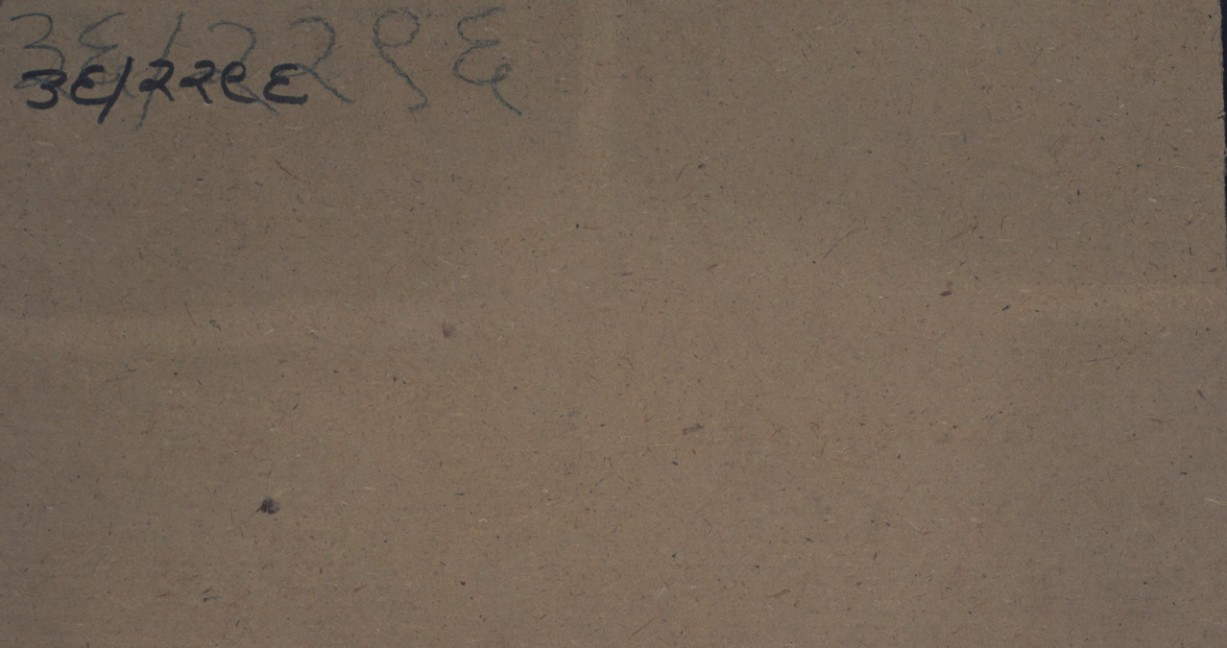 ३६/२२१६
३६/२२१६